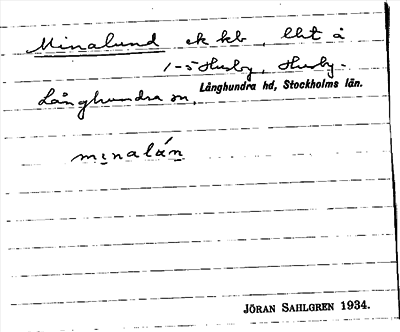 Minalund ek kb., lht å
1-5 Husby, Husby-
Långhundra sn,
Långhundra hd, Stockholms län.
minalán
JÖRAN SAHLGREN 1934.